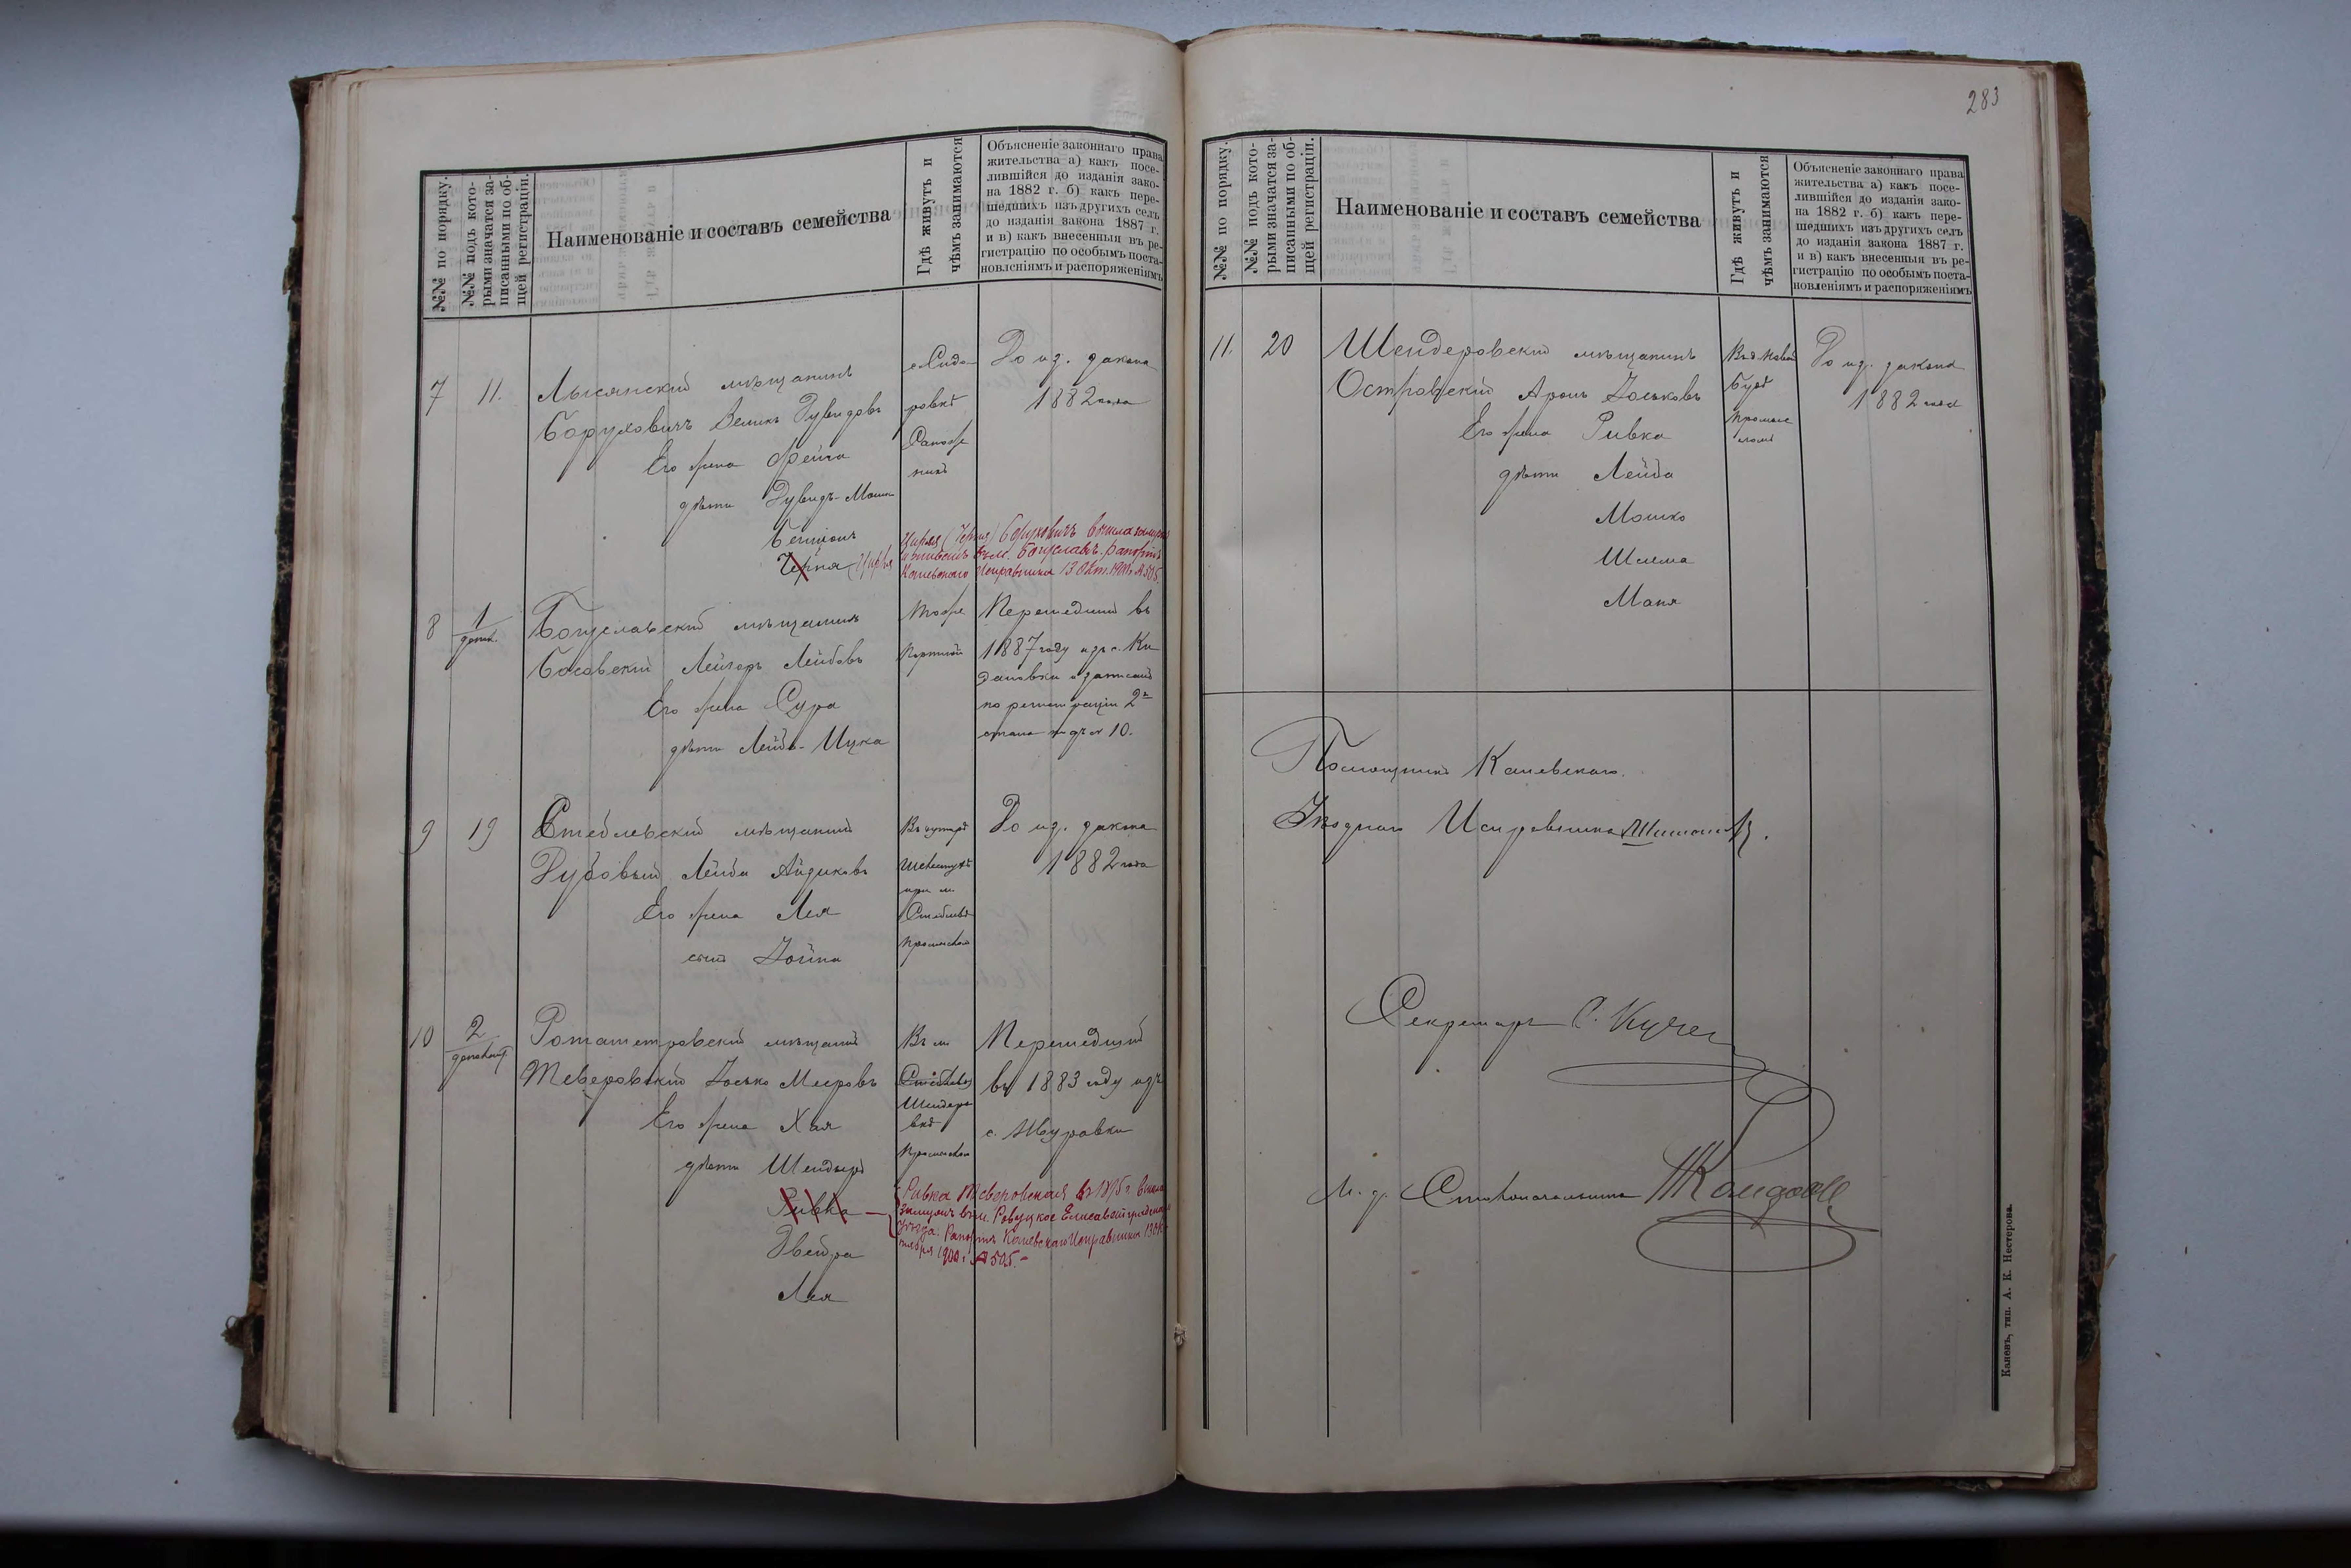 №№ по порядку.
№№ подъ кото-
рыми значатся за-
писанными по об-
щей регистраціи.
Наименованіе и составъ семейства
Гдѣ живутъ и
чѣмъ занимаются
Объясненіе законнаго права
жительства а) какъ посе-
лившійся до изданія зако-
на 1882 г. б) какъ пере-
шедшихъ изъ другихъ селъ
до изданія закона 1887 г.
и в) какъ внесенныя въ ре-
гистрацію по особымъ поста-
новленіямъ и распоряженіямъ
7 11. Лысянскій мѣщанинъ
Боруховичъ Велико Дувидовъ
Его жена Фейга
дѣти Дувидъ-Мошко
Бенціонъ
Черня (Цирля
с Сидо-
ровкѣ
Сапож
никъ
До из. закона
1882 года
Цирля (Черня) Боруховичъ вышла замужъ
въ м. Богуславъ. рапортъ
Каневскаго Исправника 13 Окт. 1900 г. № 505.
8 1
допол.
Богуславскій мѣщанинъ
Босовскій Лейзоръ Лейбовъ
Его жена Сура
дѣти Лейба-Ицка
Тоже
Портной
Перешедшій въ
1887 году изъ с. Ки
дановки и записанъ
по регистраціи 2го
стана подъ № 10.
9 19 Стеблевскій мѣщанинъ
Дубовый Лейба Айзиковъ
Его жена Лея
сынъ Іойна
Въ хуторѣ
при м.
Стеблевѣ
До из. закона
1882 года
10 2
дополнит.
Ротмистровскій мѣщанинъ
Тсверовскій Іосько Мееровъ
Его жена Хая
дѣти Шендыра
Ривка
Двейра
Лея
Въ м.
Стеблевѣ
Шендеро
вкѣ
Перешедшій
въ 1883 году изъ
с. Журовки
Ривка Тсверовская въ 1895 г. вышла
замужъ въ м. Ровуцкое Елисаветградскаго
уѣзда. Рапортъ Каневскаго Исправника 13 Ок-
тября 1900 г. № 505.-
283
№№ по порядку.
№№ подъ кото-
рыми значатся за-
писанными по об-
щей регистраціи.
Наименованіе и составъ семейства
Гдѣ живутъ и
чѣмъ занимаются
Объясненіе законнаго права
жительства а) какъ посе-
лившійся до изданія зако-
на 1882 г. б) какъ пере-
шедшихъ изъ другихъ селъ
до изданія закона 1887 г.
и в) какъ внесенныя въ ре-
гистрацію по особымъ поста-
новленіямъ и распоряженіямъ
11. 20 Шендеровскій мѣщанинъ
Островскій Аронъ Іоськовъ
Его жена Ривка
дѣти Лейба
Мошко
Шлема
Маня
Въ д. Новой
Будѣ
Промыс
ломъ
До из. закона
1882 года
Помощникъ Каневскаго
Уѣзднаго Исправника
Секретарь С. Кучер
И. д. Столоначальника
Каневъ, тип. А. К. Нестерова.